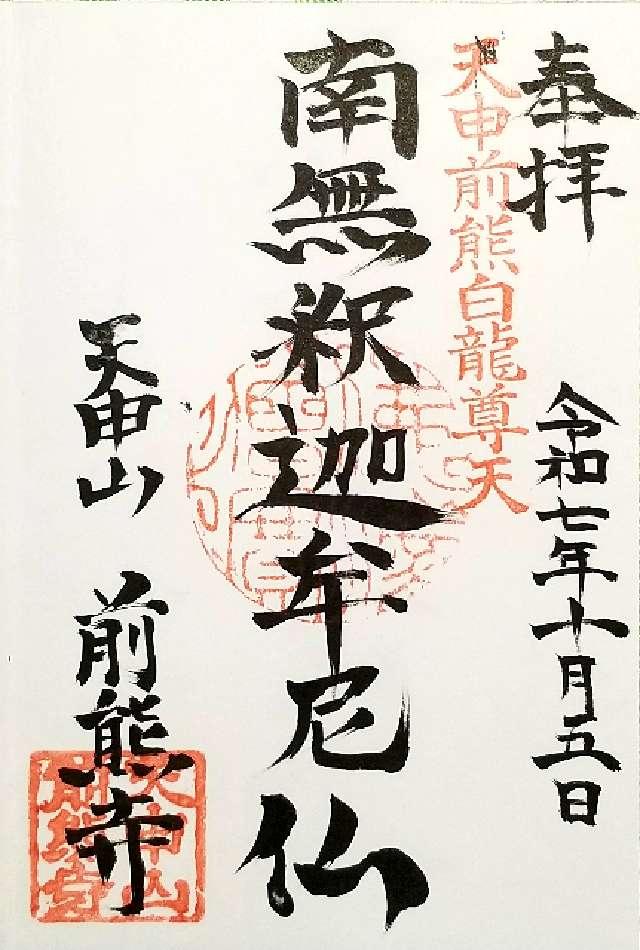 奉拝
令和七年十月五日
天申前熊白龍尊天
南無釈迦牟尼仏
天申山 前熊寺
天申山
前熊寺